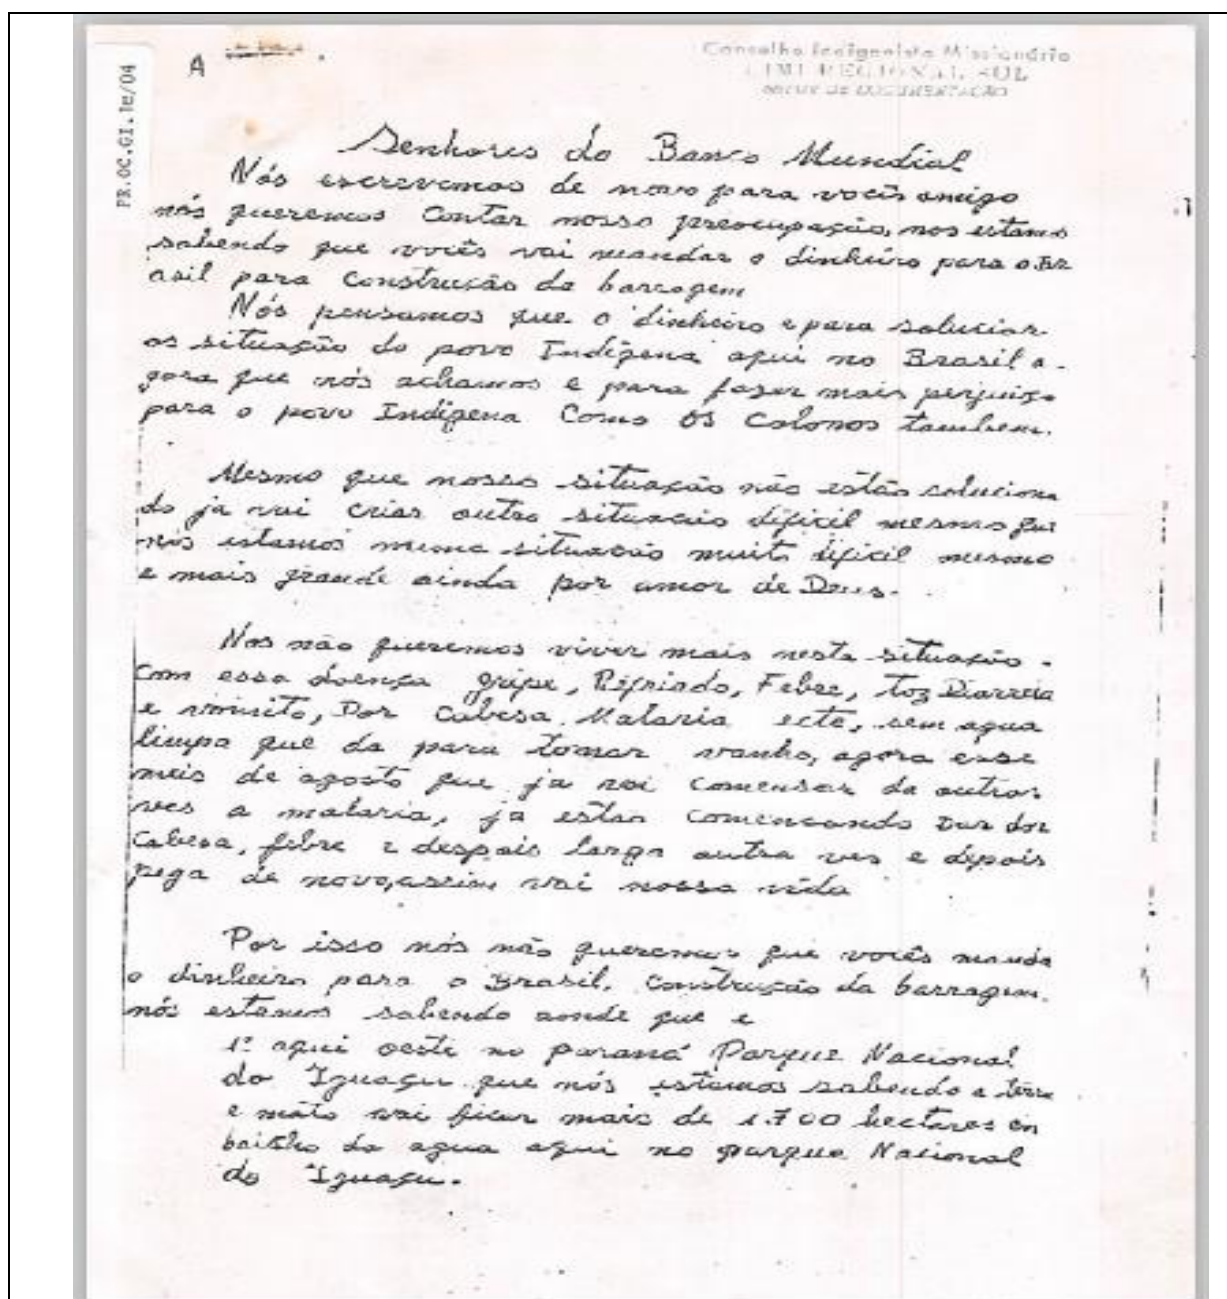 PR.OC.GI.1e/04
A
Conselho Indigenista Missionário
CIMI REGIONAL SUL
SETOR DE DOCUMENTAÇÃO
Senhores do Banco Mundial
Nós escrevemos de novo para vocês amigo
nós queremos contar nosso preocupação, nos estamos
sabendo que vocês vai mandar o dinheiro para o Br
asil para construção da barragem
Nós pensamos que o dinheiro e para soluciar
as situação do povo Indígena aqui no Brasil a-
gora que nós achamos e para fazer mais perjuizo
para o povo Indígena Como os Colonos tambem.
Mesmo que nossa situação não estão soluciona
do ja vai criar outra situação dificil mesmo que
nós estamos numa situação muito dificil mesmo
e mais grande ainda por amor de Deus.
Nos não queremos viver mais nesta situação.
Com essa doença gripe, Rifriado, Febre, toz Diarreia
e vomito, Dor Cabesa, Malaria ecte, sem agua
limpa que da para tomar vanho, agora esse
meis de agosto que ja vai comensar da outra
ves a malaria, ja estão comencando Dar dor
Cabesa, febre e despois larga outra ves e depois
pega de novo, assim vai nossa vida
Por isso nós não queremos que vocês manda
o dinheiro para o Brasil. Construção da barragem.
nós estamos sabendo aonde que e
1º aqui oeste no paraná Parque Nacional
do Iguaçu que nós estamos sabendo a terra
e mato vai ficar mais de 1.700 hectares en
baixho da agua aqui no parque Nacional
do Iguaçu.